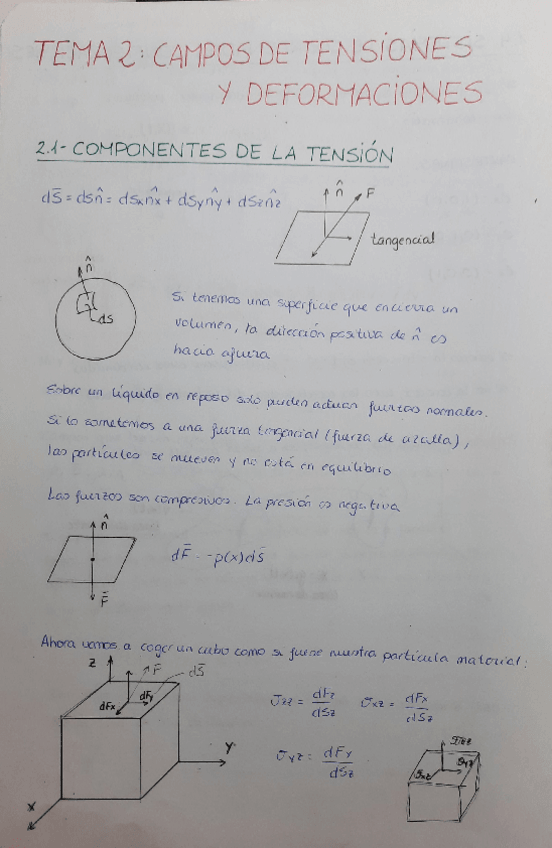 TEMA 2: CAMPOS DE TENSIONES
Y DEFORMACIONES
2.1- COMPONENTES DE LA TENSIÓN
dS̄ = dSn̂ = dSxn̂x + dSyn̂y + dSzn̂z
n̂
F
tangencial
n̂
dS
Si tenemos una superficie que encierra un
volumen, la dirección positiva de n̂ es
hacia afuera
Sobre un líquido en reposo solo pueden actuar fuerzas normales.
Si lo sometemos a una fuerza tangencial (fuerza de azalla),
las partículas se mueven y no está en equilibrio
Las fuerzas son compresivas. La presión es negativa
n̂
F̄
dF̄ = -p(x)dS̄
Ahora vamos a coger un cubo como si fuese nuestra partícula material:
z
F̄
dS̄
dFx
dFy
Y
X
σzz = dFz/dSz σxz = dFx/dSz
σyz = dFy/dSz
σzz
σyz
σxz